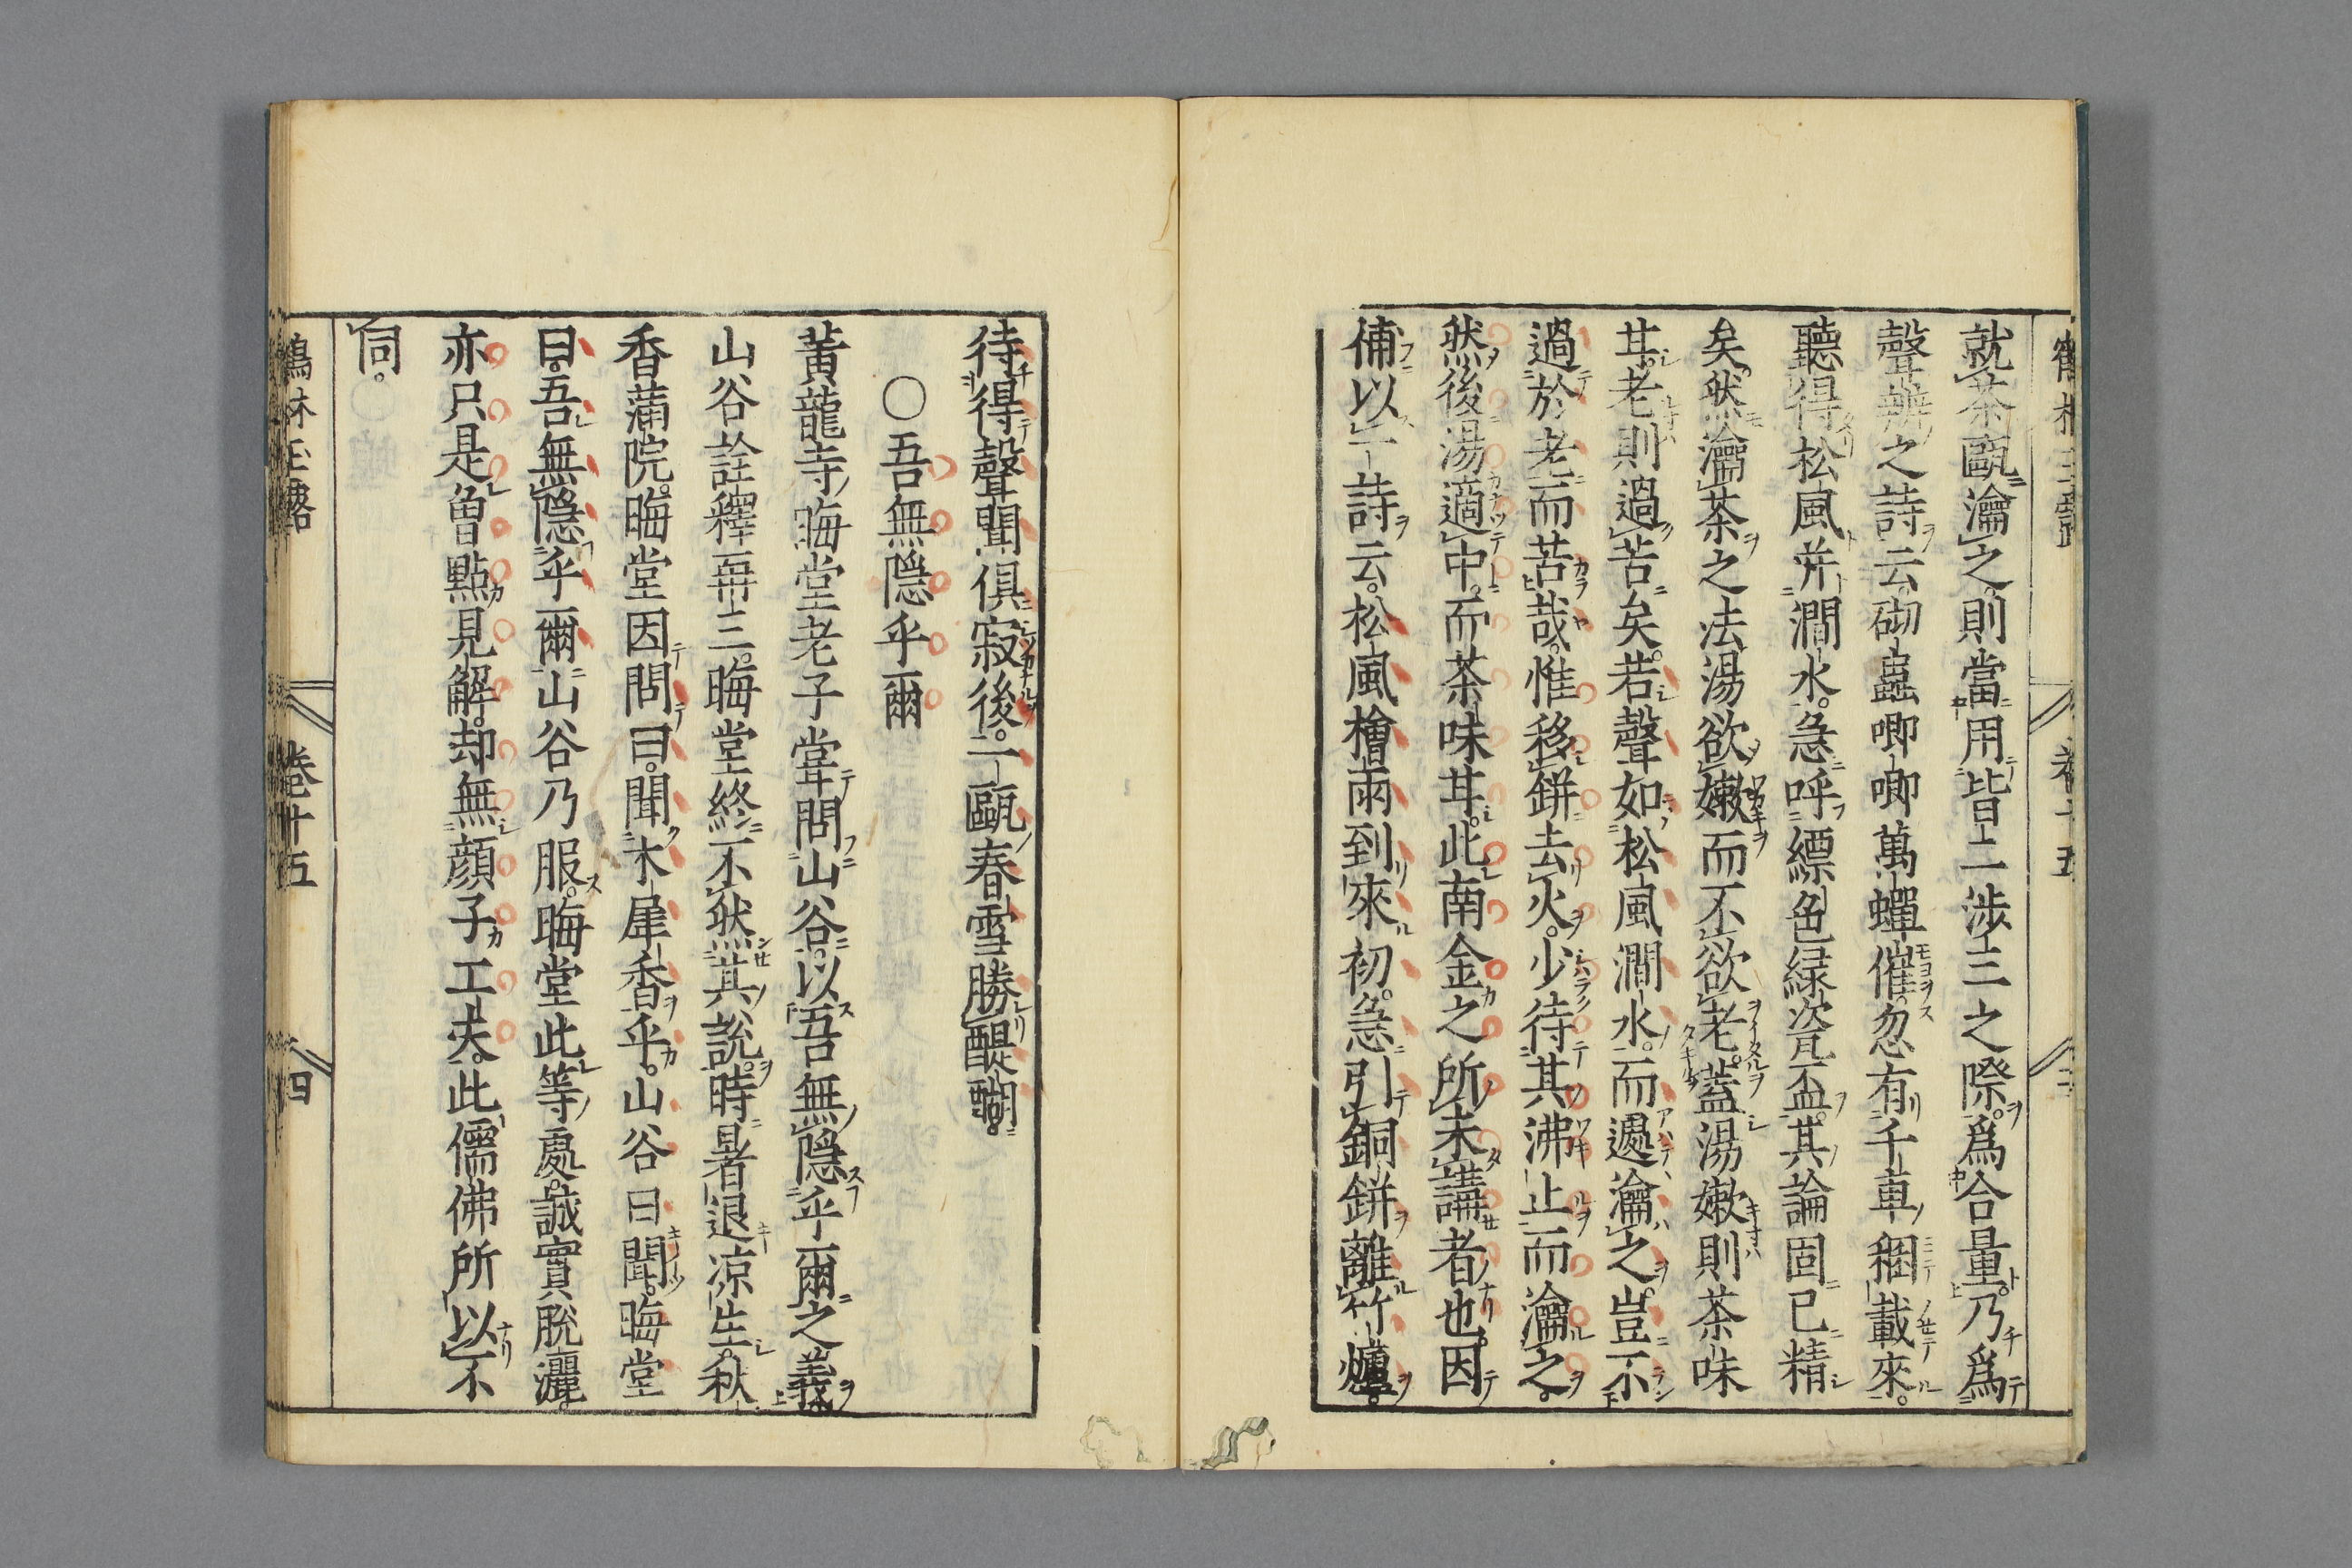 就茶甌瀹之則當用背二渉三之際爲合量乃爲
聲辨之詩云砌蟲唧唧萬蟬催忽有千車稇載來
聽得松風并澗水急呼縹色緑瓷盃其論固已精
矣然瀹茶之法湯欲嫩而不欲老蓋湯嫩則茶味
甘老則過苦矣若聲如松風澗水而遽瀹之豈不
過於老而苦哉惟移缾去火少待其沸止而瀹之
然後湯適中而茶味甘此南金之所未講者也因
補以一詩云松風檜雨到來初急引銅缾離竹爐
待得聲聞倶寂後一甌春雪勝醍醐
〇吾無隠乎爾
黄龍寺晦堂老子甞問山谷以吾無隠乎爾之義
山谷詮釋再三晦堂終不然其説時暑退凉生秋
香滿院晦堂因問曰聞木犀香乎山谷曰聞晦堂
曰吾無隠乎爾山谷乃服晦堂此等處誠實脱灑
亦只是曾點見解却無顔子工夫此儒佛所以不
同
鶴林玉露 卷十五 四